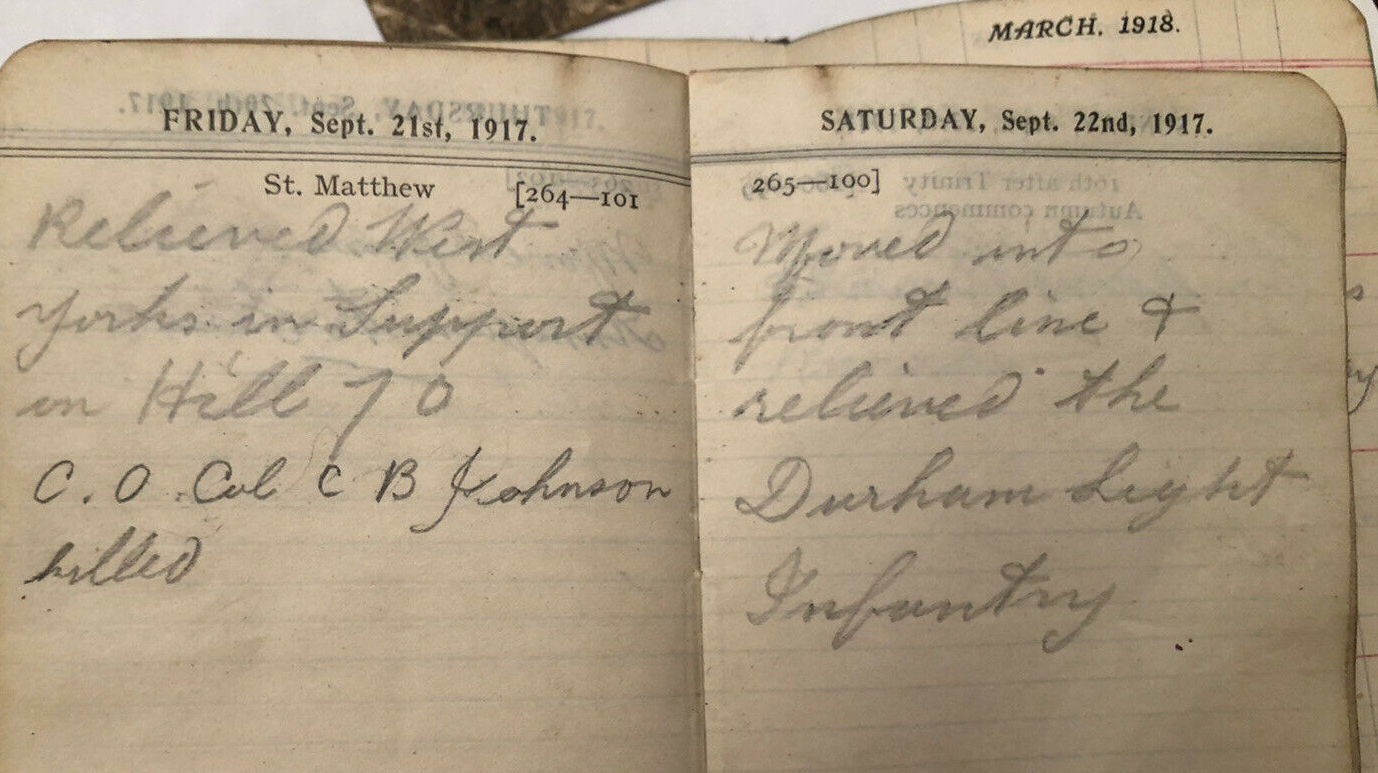 MARCH. 1918.
FRIDAY, Sept. 21st, 1917.
St. Matthew [264—101
Relieved West
Yorks in Support
in Hill 70
C. O. Col C B Johnson
killed
SATURDAY, Sept. 22nd, 1917.
265—100]
Moved into
front line &
relieved the
Durham Light
Infantry